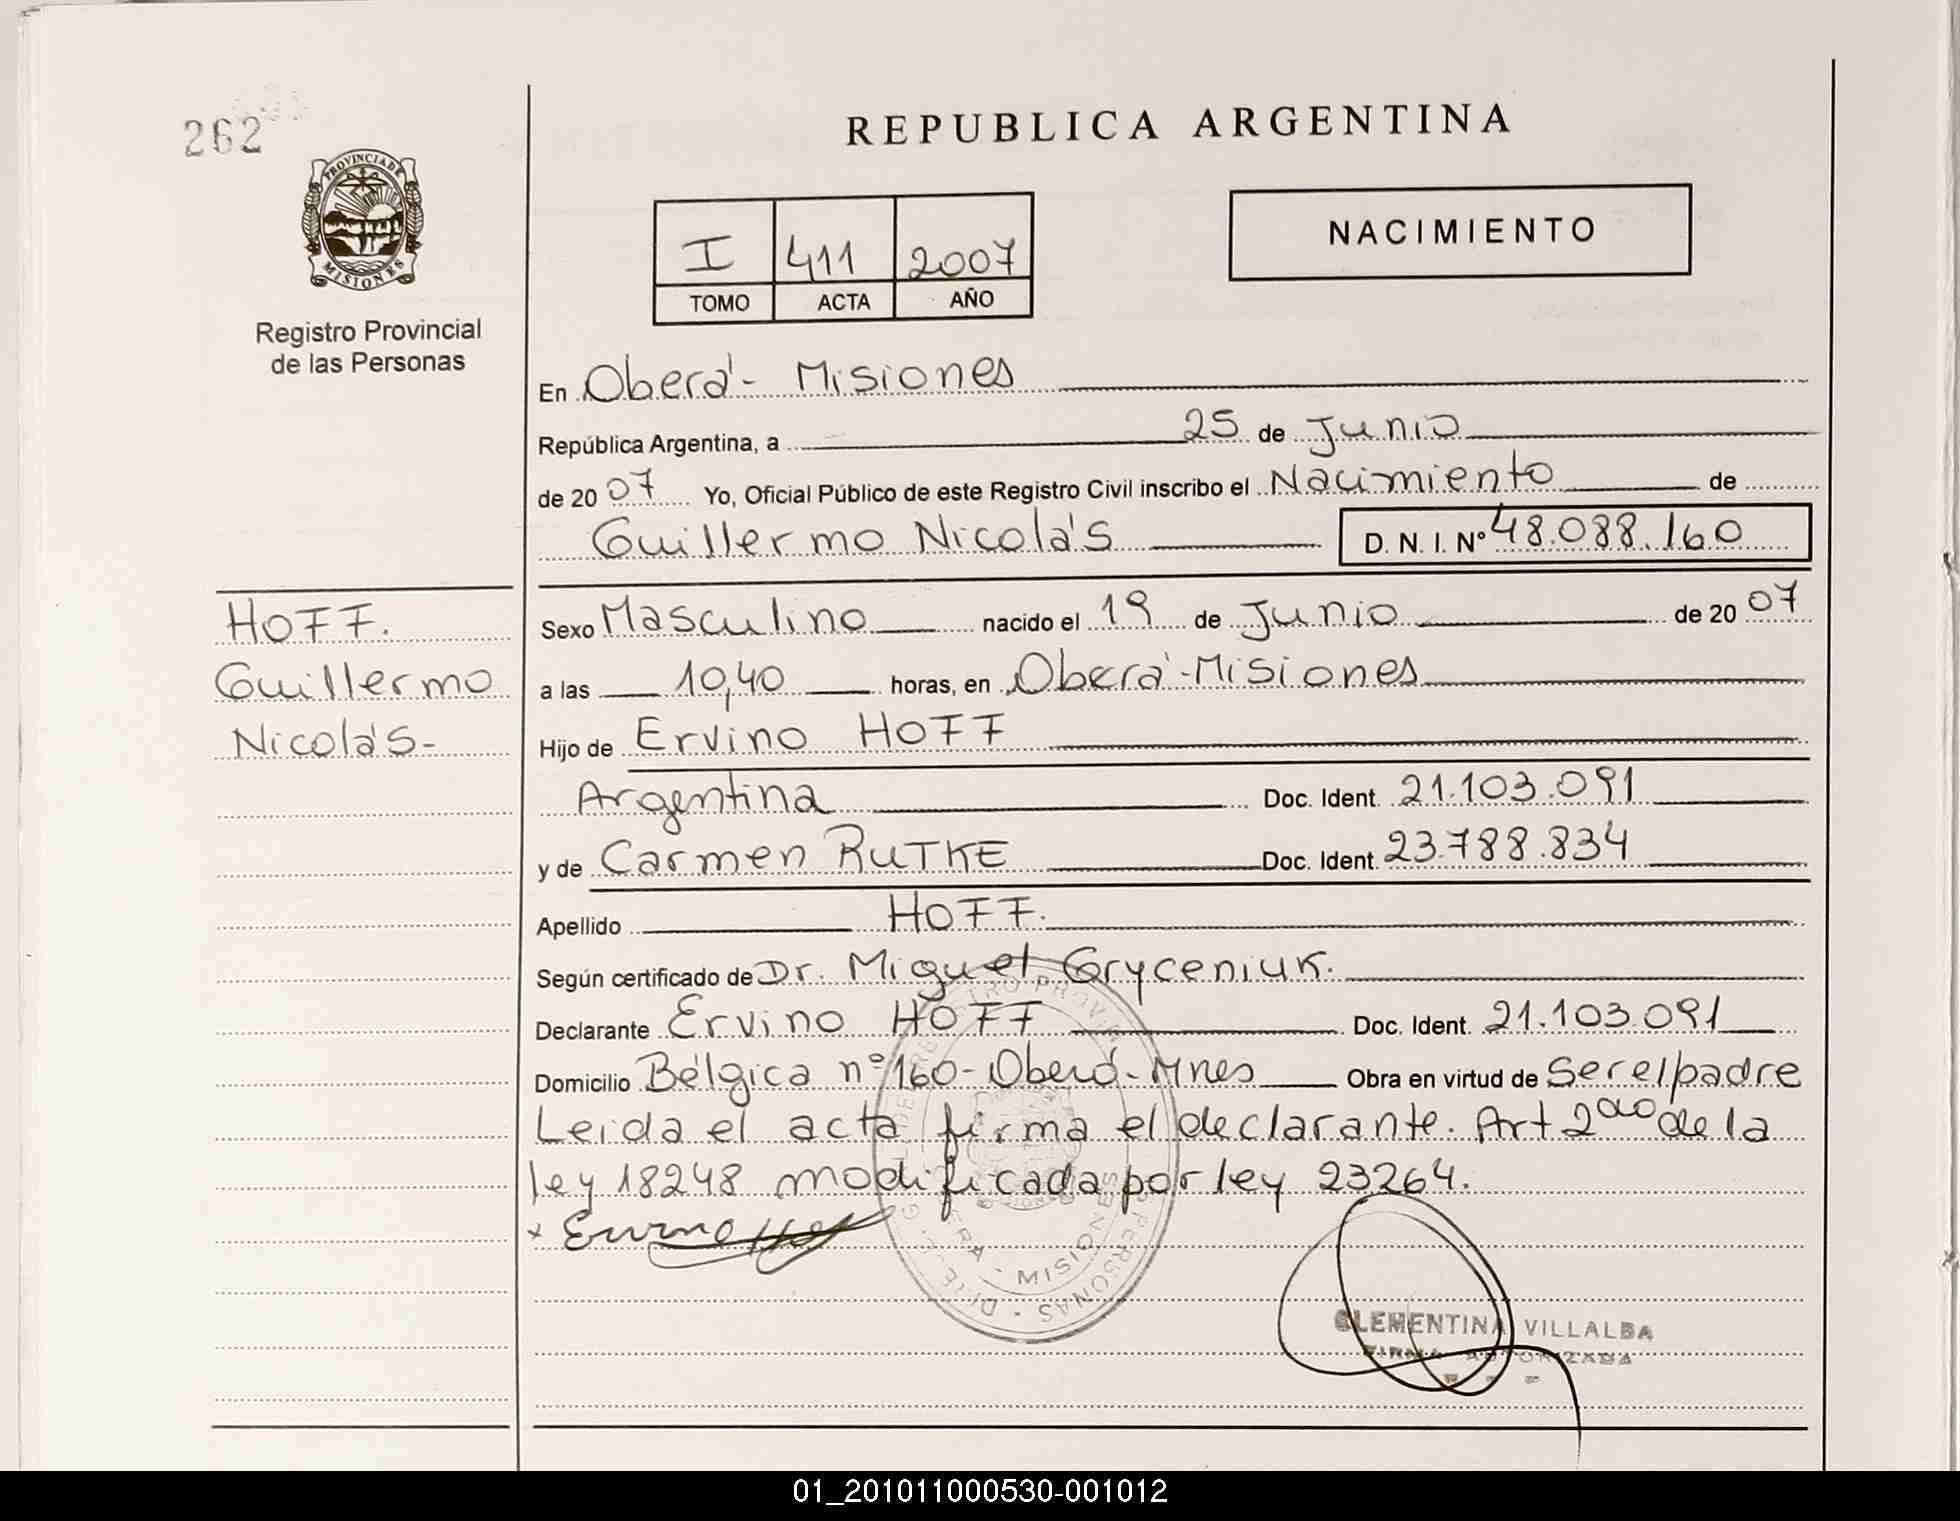 262
REPUBLICA ARGENTINA
PROVINCIA DE
MISIONES
Registro Provincial
de las Personas
I 411 2007
TOMO ACTA AÑO
NACIMIENTO
En Oberá - Misiones
República Argentina, a 25 de Junio
de 20 07 Yo, Oficial Público de este Registro Civil inscribo el Nacimiento de
Guillermo Nicolás D. N. I. Nº 48.088.160
HOFF.
Guillermo
Nicolás-
Sexo Masculino nacido el 19 de Junio de 20 07
a las 10,40 horas, en Oberá - Misiones
Hijo de Ervino HOFF
Argentina Doc. Ident. 21.103.091
y de Carmen RUTKE Doc. Ident. 23.788.834
Apellido HOFF.
Según certificado de Dr. Miguel Gryceniuk.
Declarante Ervino HOFF Doc. Ident. 21.103.091
Domicilio Bélgica nº 160 - Oberá - Mnes Obra en virtud de Ser el padre
Leida el acta firma el declarante. Art 2do de la
ley 18248 modificada por ley 23264.
MISIONES
PERSONAS
CLEMENTINA VILLALBA
FIRMA AUTORIZADA
01_201011000530-001012